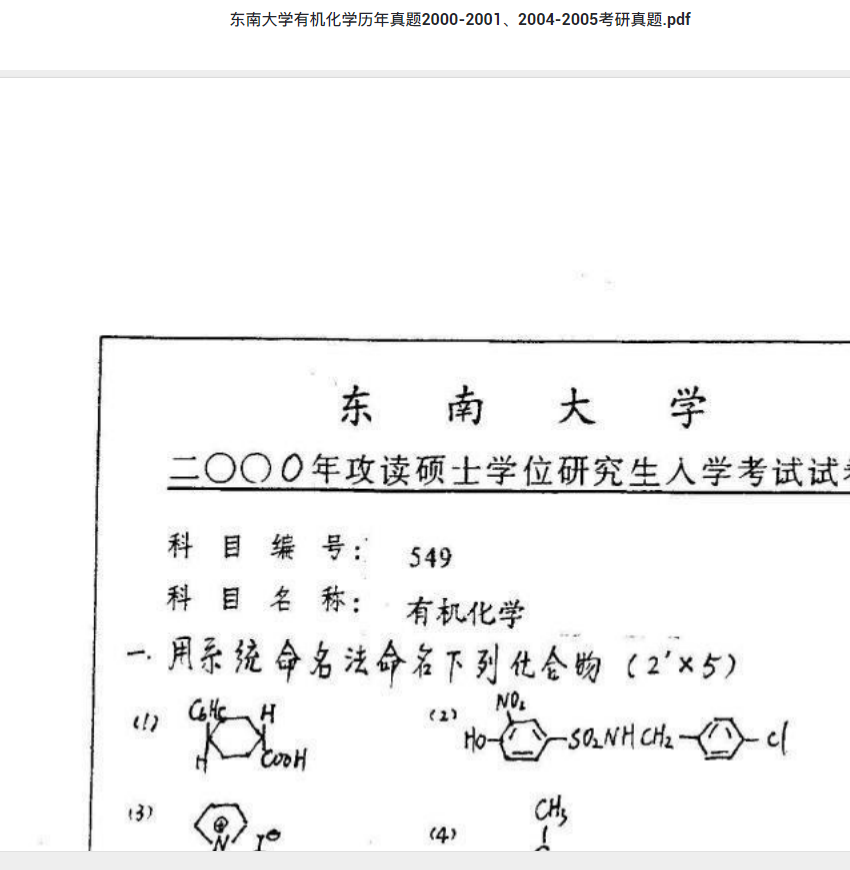 东南大学有机化学历年真题2000-2001、2004-2005考研真题.pdf
东 南 大 学
二〇〇0年攻读硕士学位研究生入学考试试
科 目 编 号: 549
科 目 名 称: 有机化学
一. 用系统命名法命名下列化合物 (2'×5)
(1) C6H5 H H COOH
(2) NO2 HO SO2NHCH2 Cl
(3) ⊕ N I⊖
(4) CH3